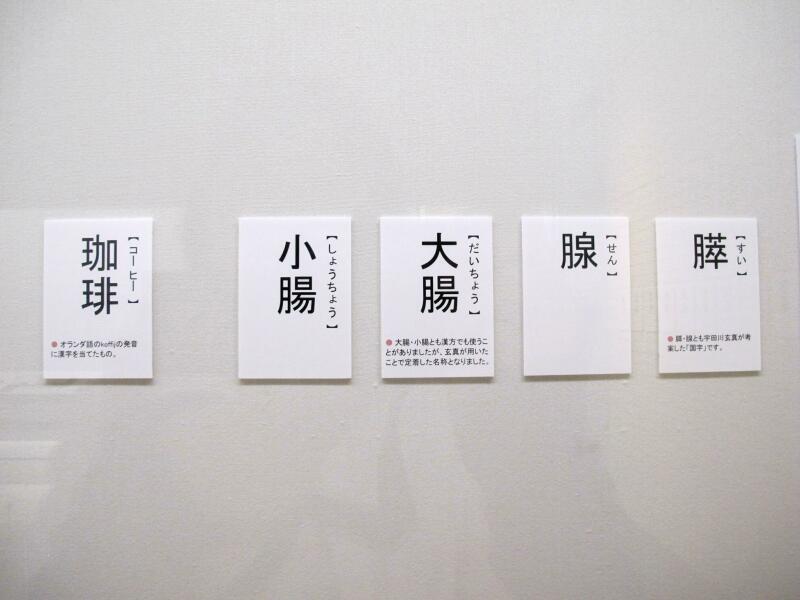 膵
【すい】
● 膵・腺とも宇田川玄真が考
案した「国字」です。
腺
【せん】
大腸
【だいちょう】
● 大腸・小腸とも漢方でも使うこ
とがありましたが、玄真が用いた
ことで定着した名称となりました。
小腸
【しょうちょう】
珈琲
【コーヒー】
● オランダ語のkoffijの発音
に漢字を当てたもの。